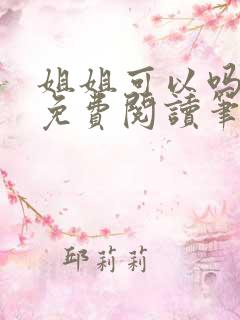 姐姐可以吗
免費閱讀筆
邱莉莉